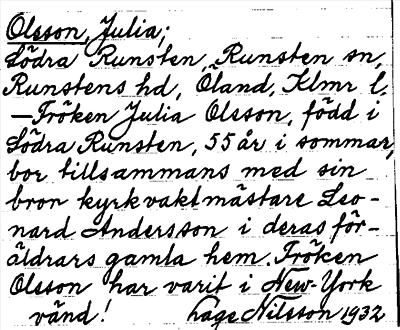 Olsson, Julia;
Södra Runsten, Runsten sn,
Runstens hd, Öland, Klmr l.
—Fröken Julia Olsson, född i
Södra Runsten, 55 år i sommar,
bor tillsammans med sin
bron kyrkvaktmästare Leo-
nard Andersson i deras för-
äldrars gamla hem. Fröken
Olsson har varit i New-York
vänd! Lage Nilsson 1932